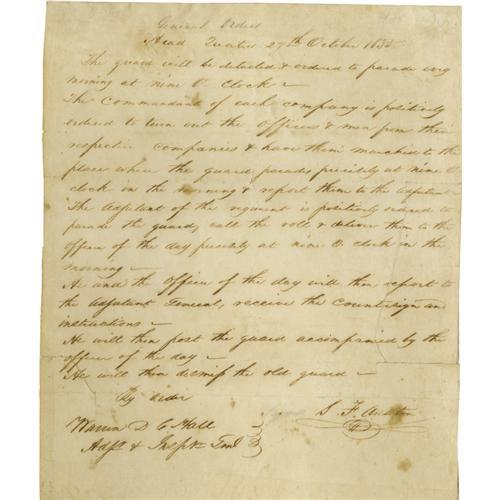 General Orders
Head Quarters 27th October 1835
The guard will be detailed & ordered to parade every
morning at nine O clock
The Commandant of each company is positively
ordered to turn out the Officers & men from their
respective companies & have them marched to the
place where the guard parades precisely at nine O
clock in the morning & report them to the Adjutant
The Adjutant of the regiment is positively ordered to
parade the guard, call the roll & deliver them to the
officer of the day precisely at nine O clock in the
morning
He and the officer of the day will then report to
the Adjutant General, receive the Countersign and
instructions
He will then post the guard accompanied by the
officer of the day
He will then dismiss the old guard
By order
S. F. Austin
Warren D C Hall
Adjt & Inspr Genl